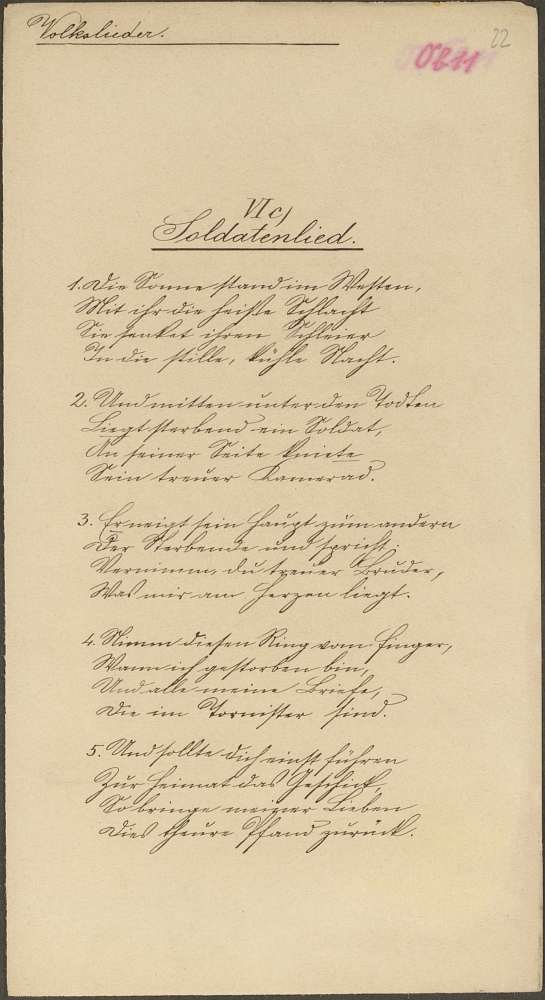 Volkslieder.
22
0211
VI c)
Soldatenlied.
1. Die Sonne stand im Westen,
Mit ihr die heiße Schlacht
Sie senket ihren Schleier
In die stille, kühle Nacht.
2. Und mitten unter den Todten
Liegt sterbend ein Soldat,
An seiner Seite kniete
Sein treuer Kamerad.
3. Er neigt sein Haupt zum andern
Der Sterbende und spricht:
Vernimm, du treuer Bruder,
Was mir am Herzen liegt.
4. Nimm diesen Ring vom Finger,
Wann ich gestorben bin,
Und alle meine Briefe,
Die im Tornister sind.
5. Und sollte dich einst führen
Zur Heimat das Geschick,
So bringe meiner Lieben
Dies theure Pfand zurück.